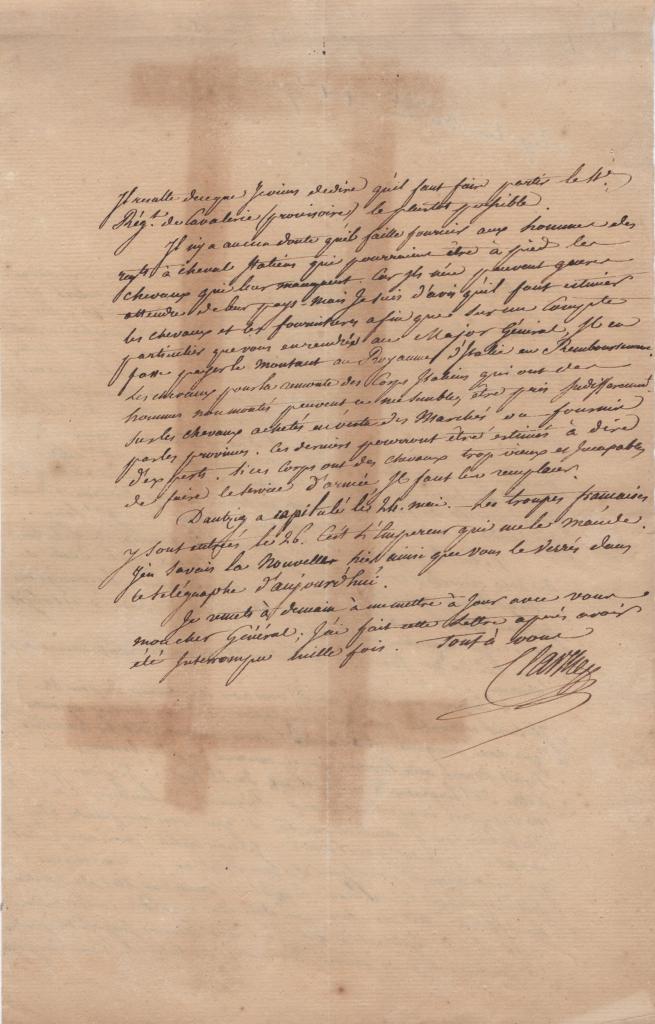 Il resulte de ce que je viens de dire qu'il faut faire partir le 4e.
Régt. de Cavalerie (provisoire) le plustot possible.
Il n'y a aucun doute qu'il faille fournir aux hommes des
regts à cheval Italiens qui pourraient être à pied les
chevaux qui leur manquent. Car ils n'en peuvent guere
attendre de leur pays. mais Je suis d'avis qu'il faut estimer
les chevaux et les fournitures afin que sur un Compte
particulier que vous en rendrés au Major Général, Il en
fasse payer le montant au Royaume d'Italie en Remboursement.
Les chevaux pour la remonte des Corps Italiens qui ont des
hommes non montés peuvent ce me semble, être pris Indifferament
sur les chevaux achetés en vertu des Marchés ou fournis
par les provinces. Ces derniers pourront être estimés à dire
d'experts. Si ces Corps ont des chevaux trop vieux et Incapables
de faire le service d'armée, Il faut les remplacer.
Dantzig a capitulé le 24. mai. Les troupes francaises
y sont entrées le 26. C'est l'Empereur qui me le mande.
J'en savais la Nouvelle hier ainsi que vous le verrés dans
le telégraphe d'aujourd'hui.
Je remets à demain à me mettre à Jour avec vous
mon cher Général; J'ai fait cette lettre après avoir
été Interrompu mille fois. Tout à vous
Clarke